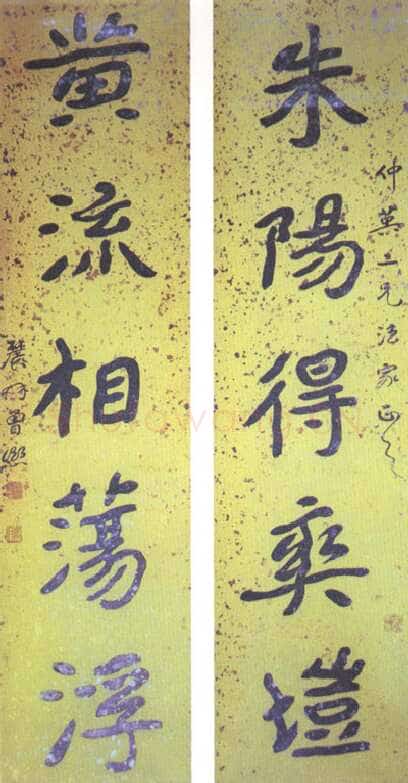 仲英二兄法家正之
朱陽得爽塏
黄流相蕩浮
農髯曾熙